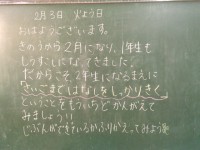 2月3日 火よう日
おはようございます。
きのうから2月になり、1年生も
のこりすこしになってきました。
だからこそ、2年生になるまえに
さいごまではなしをしっかりきく
ということをもういちどかんがえて
みましょう!!
じぶんができているかふりかえってみよう